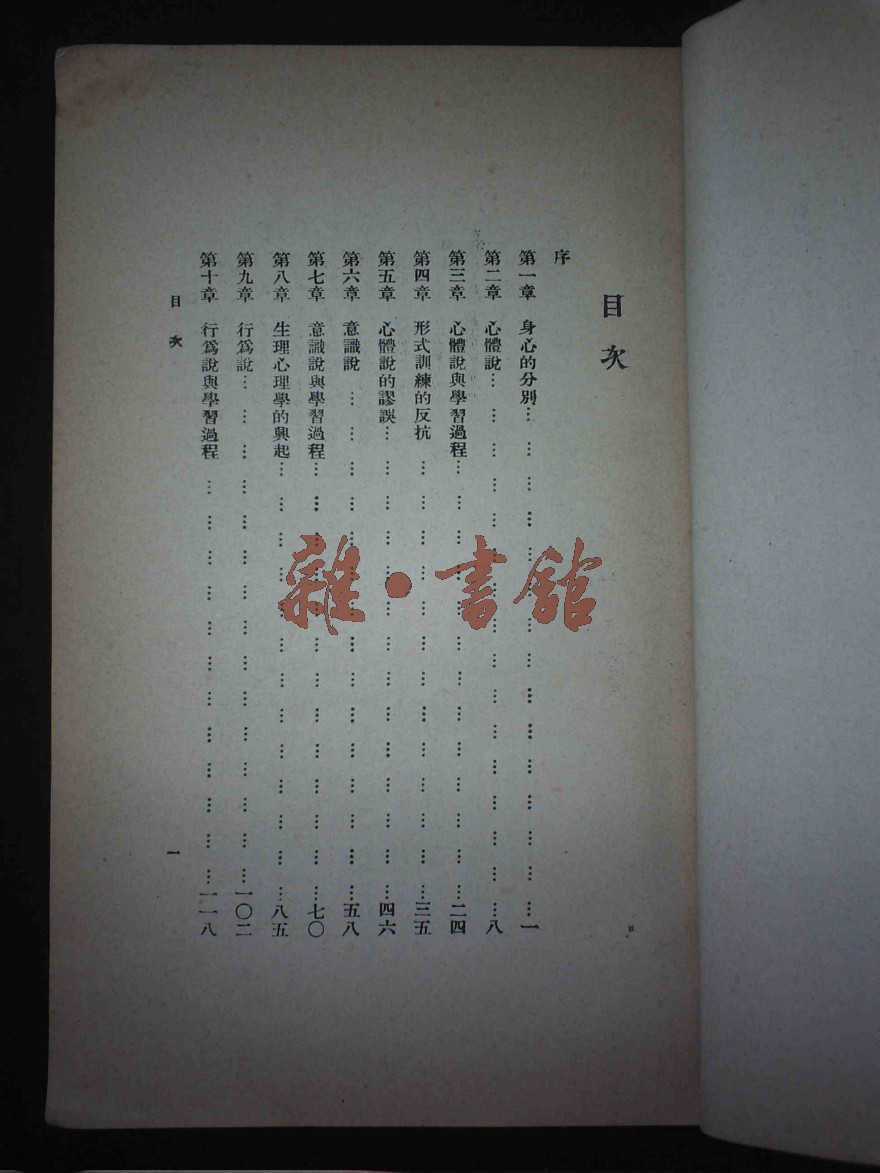 目次
序
第一章 身心的分別… … … … … … … … … … … … … … …一
第二章 心體說… … … … … … … … … … … … … … … …八
第三章 心體說與學習過程… … … … … … … … … … … … …二四
第四章 形式訓練的反抗 … … … … … … … … … … … … …三五
第五章 心體說的謬誤… … … … … … … … … … … … … …四六
第六章 意識說 … … … … … … … … … … … … … … …五八
第七章 意識說與學習過程… … … … … … … … … … … … …七〇
第八章 生理心理學的興起… … … … … … … … … … … … …八五
第九章 行為說… … … … … … … … … … … … … … …一〇二
第十章 行為說與學習過程 … … … … … … … … … … … …一一八
目次
一
雜·書館